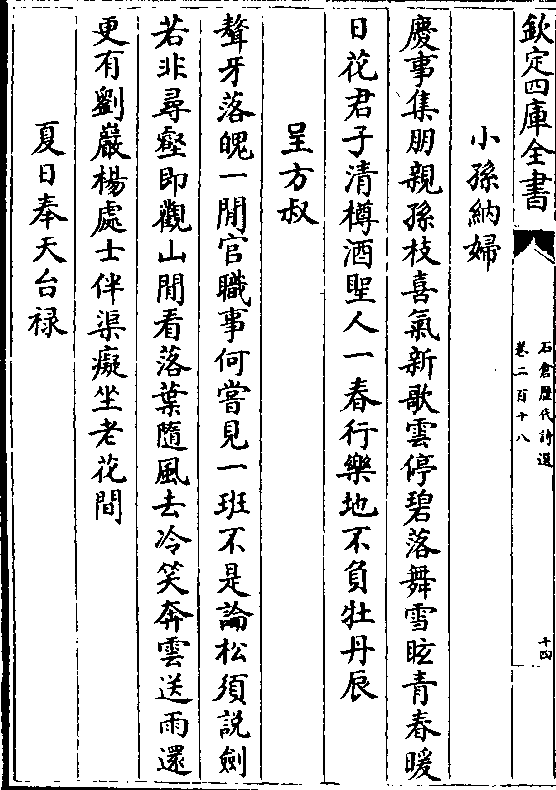 欽定四庫全書
石倉歷代詩選
卷二百十八
十四
小孫納婦
慶事集朋親孫枝喜氣新歌雲停碧落舞雪眩青春暖
日花君子清樽酒聖人一春行樂地不負牡丹辰
呈方叔
聱牙落魄一閒官職事何嘗見一班不是論松須説劍
若非尋壑即觀山閒看落葉隨風去冷笑奔雲送雨還
更有劉巖楊處士伴渠癡坐老花間
夏日奉天台祿